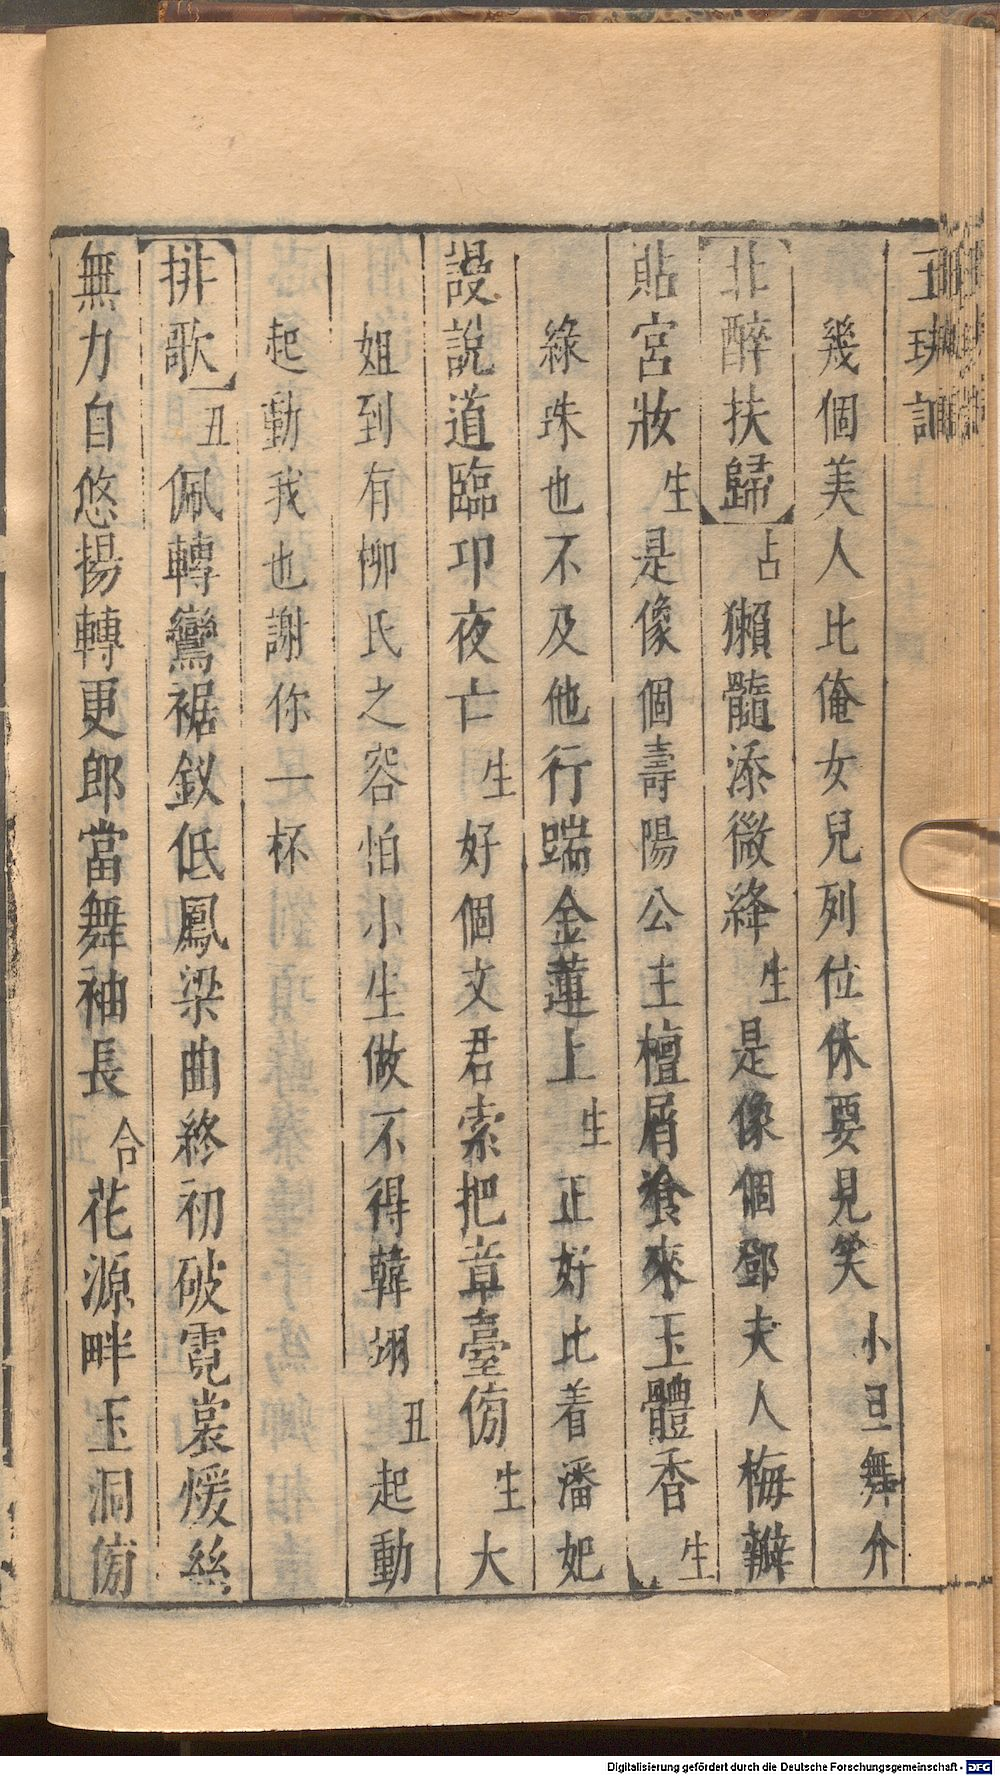 玉玦記
幾個美人比俺女兒列位休要見笑小旦舞介
北醉扶歸占獺髓添微絳生是像個鄧夫人梅瓣
貼宮妝生是像個壽陽公主檀屑飱來玉體香生
綠珠也不及他行踹金蓮上生正好比着潘妃
謾說道臨卭夜亡生好個文君索把章臺傍生大
姐到有柳氏之容怕小生做不得韓翊丑起動
起動我也謝你一杯
排歌丑佩轉鸞裾釵低鳳梁曲終初破霓裳煖絲
無力自悠揚轉更郎當舞袖長合花源畔玉洞傍
Digitalisierung gefördert durch die Deutsche Forschungsgemeinschaft - DFG